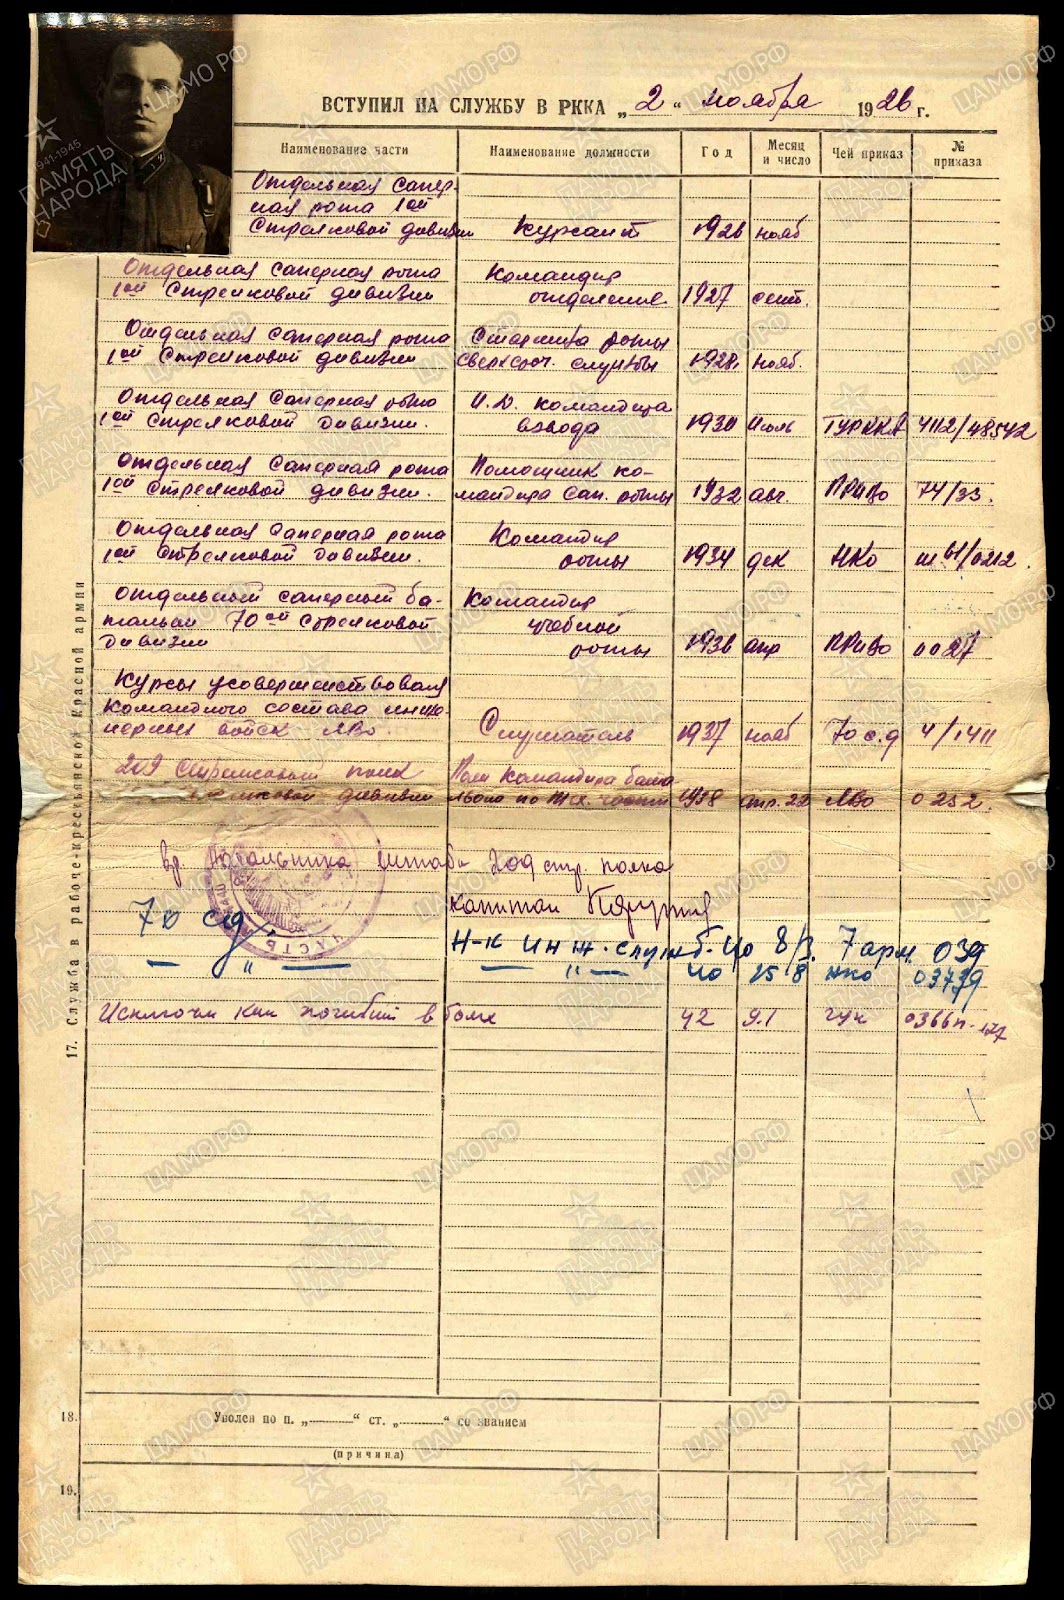 ВСТУПИЛ НА СЛУЖБУ В РККА „2“ ноября 1926 г.
Наименование части Наименование должности Год Месяц и число Чей приказ № приказа
Отдельная сапер-
ная рота 1ой
Стрелковой дивизии Курсант 1926 нояб
Отдельная саперная рота Командир
1ой Стрелковой дивизии отделения 1927 сент.
Отдельная саперная рота Старшина роты
1ой Стрелковой дивизии сверхсроч. службы 1928 нояб.
Отдельная саперная рота И.Д. командира
1ой Стрелковой дивизии. взвода 1930 Июль ГУРККА 4112/48542
Отдельная саперная рота Помощник ко-
1ой Стрелковой дивизии. мандира сап. роты 1932 авг. ПриВо 74/33.
Отдельная саперная рота Командир
1ой Стрелковой дивизии. роты 1934 дек НКО 61/0212.
Отдельный саперный ба- Командир
тальон 70ой стрелковой учебной
дивизии роты 1936 апр ПриВо 0027
Курсы усовершенствован
командного состава инже-
нерных войск ЛВО. Слушатель 1937 нояб 70 с.д 4/1411
209 Стрелковый полк Пом Командира бата
дивизии льона по тех. части 1938 апр. 22 ЛВО 0252.
Вр. Начальника Штаба 209 стр. полка
капитан
70 сд Н-к инж. служб. 40 8/3. 7 арм. 039
— „ — — „ — 40 25 8 НКО 03739
Исключен как погибший в бою 42 9.1 ГУК 0366п.
17. Служба в рабоче-крестьянской Красной армии
18. Уволен по п. „———“ ст. „———“ со званием
(причина)
19.
ПАМЯТЬ НАРОДА
1941-1945
ЦАМО РФ